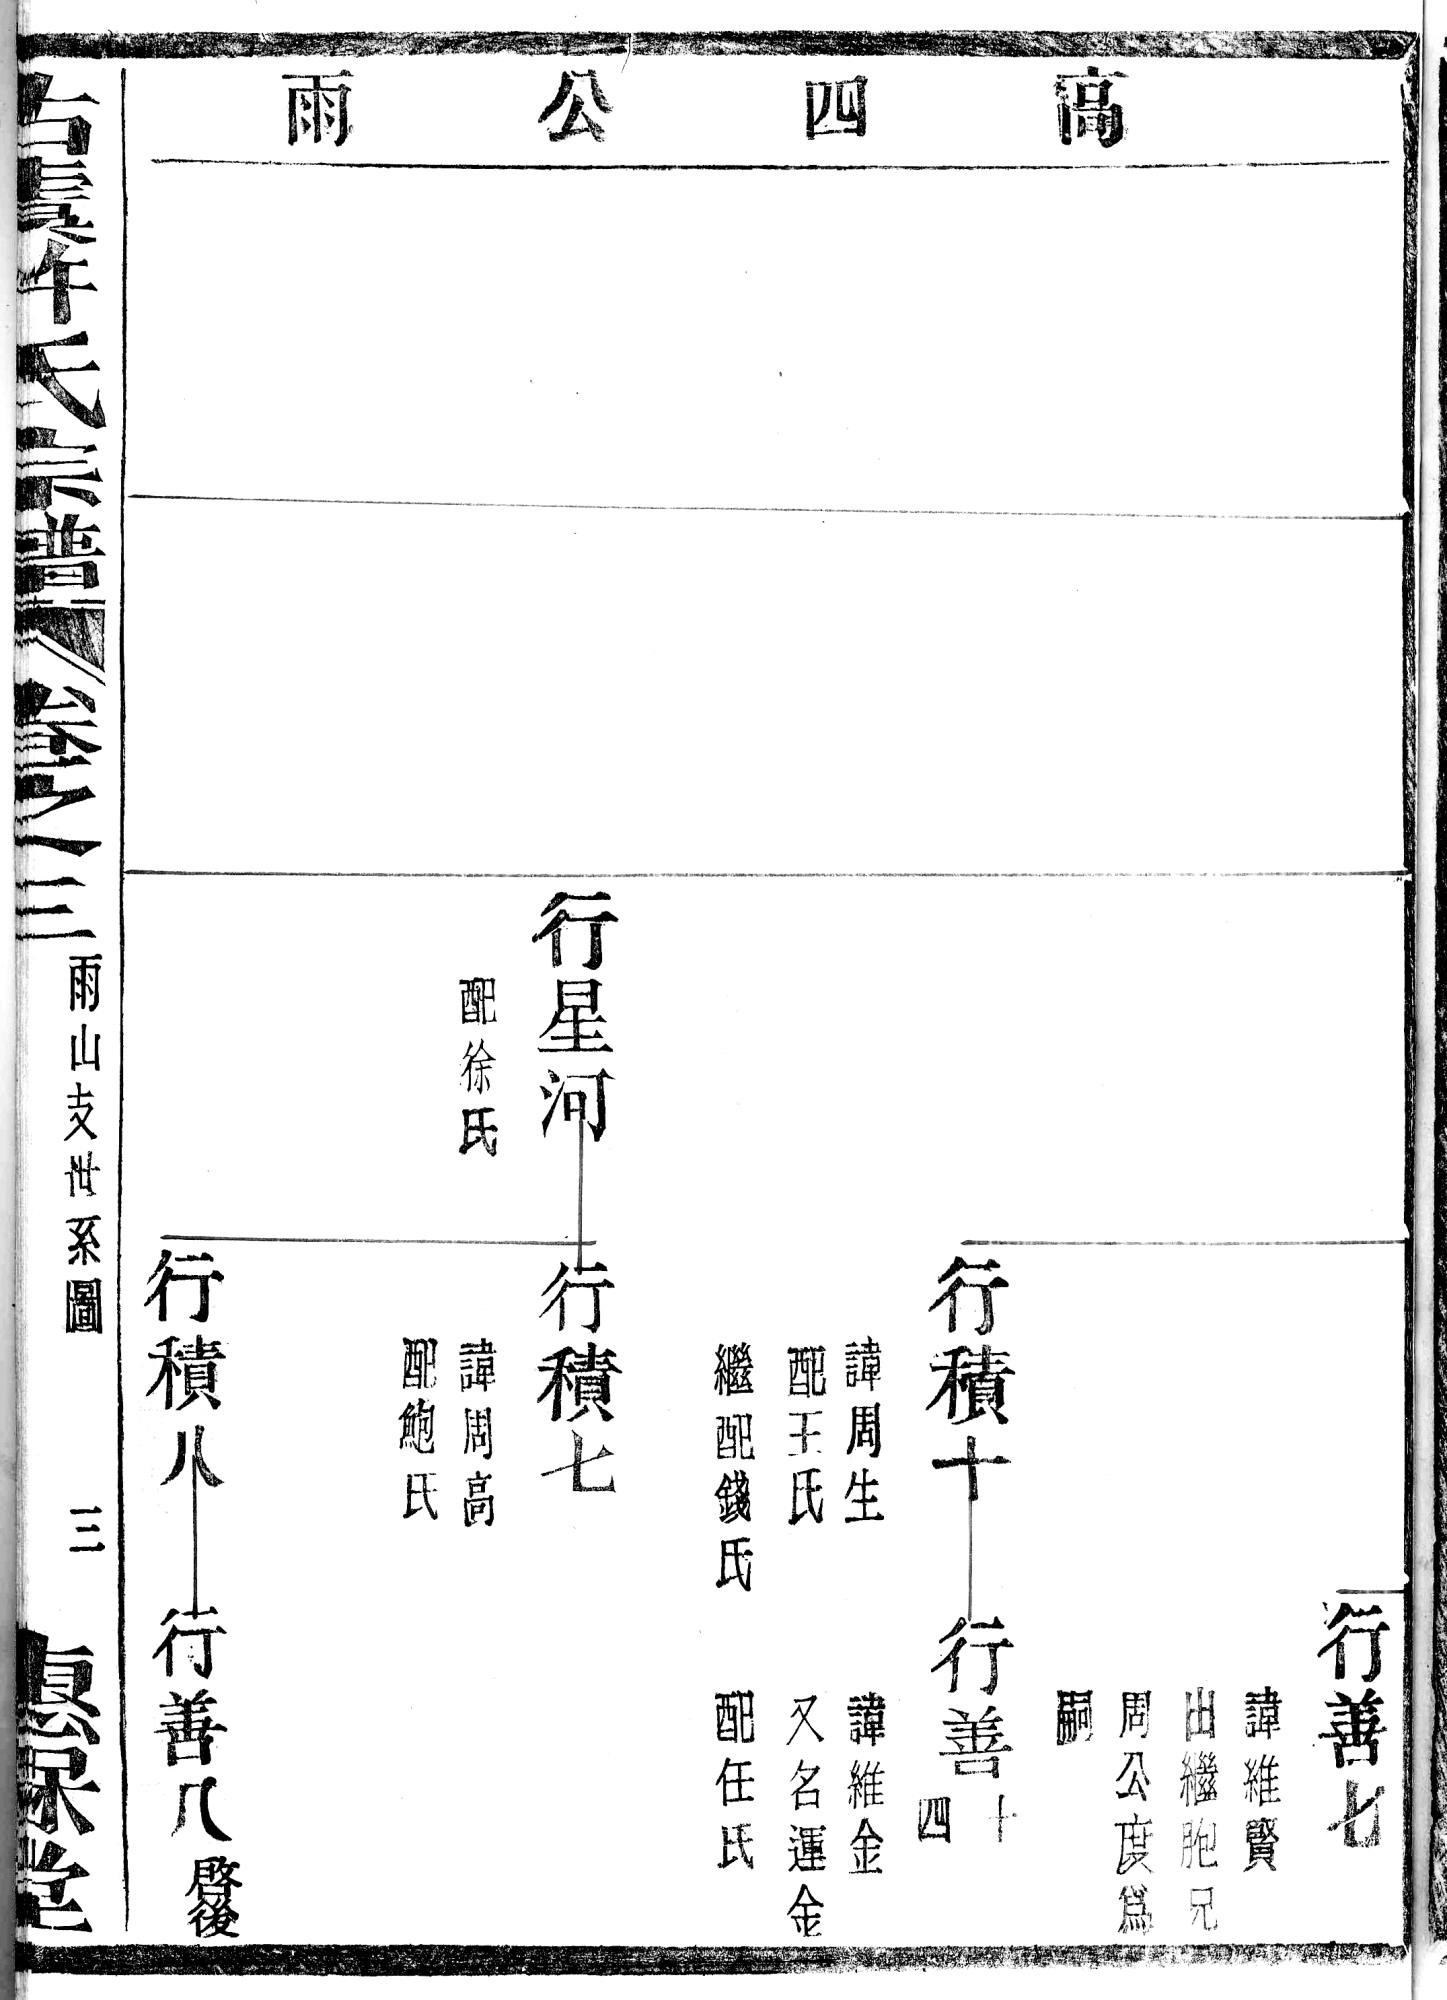 高四公雨
行善七
諱維賢
出繼胞兄
周公度爲
嗣
行積十
諱周生
配王氏
繼配錢氏
行善十四
諱維金
又名運金
配任氏
行星河
配徐氏
行積七
諱周高
配鮑氏
行積八
行善八
啓後
古虞許氏宗譜
卷之三
雨山支世系圖
三
保堂